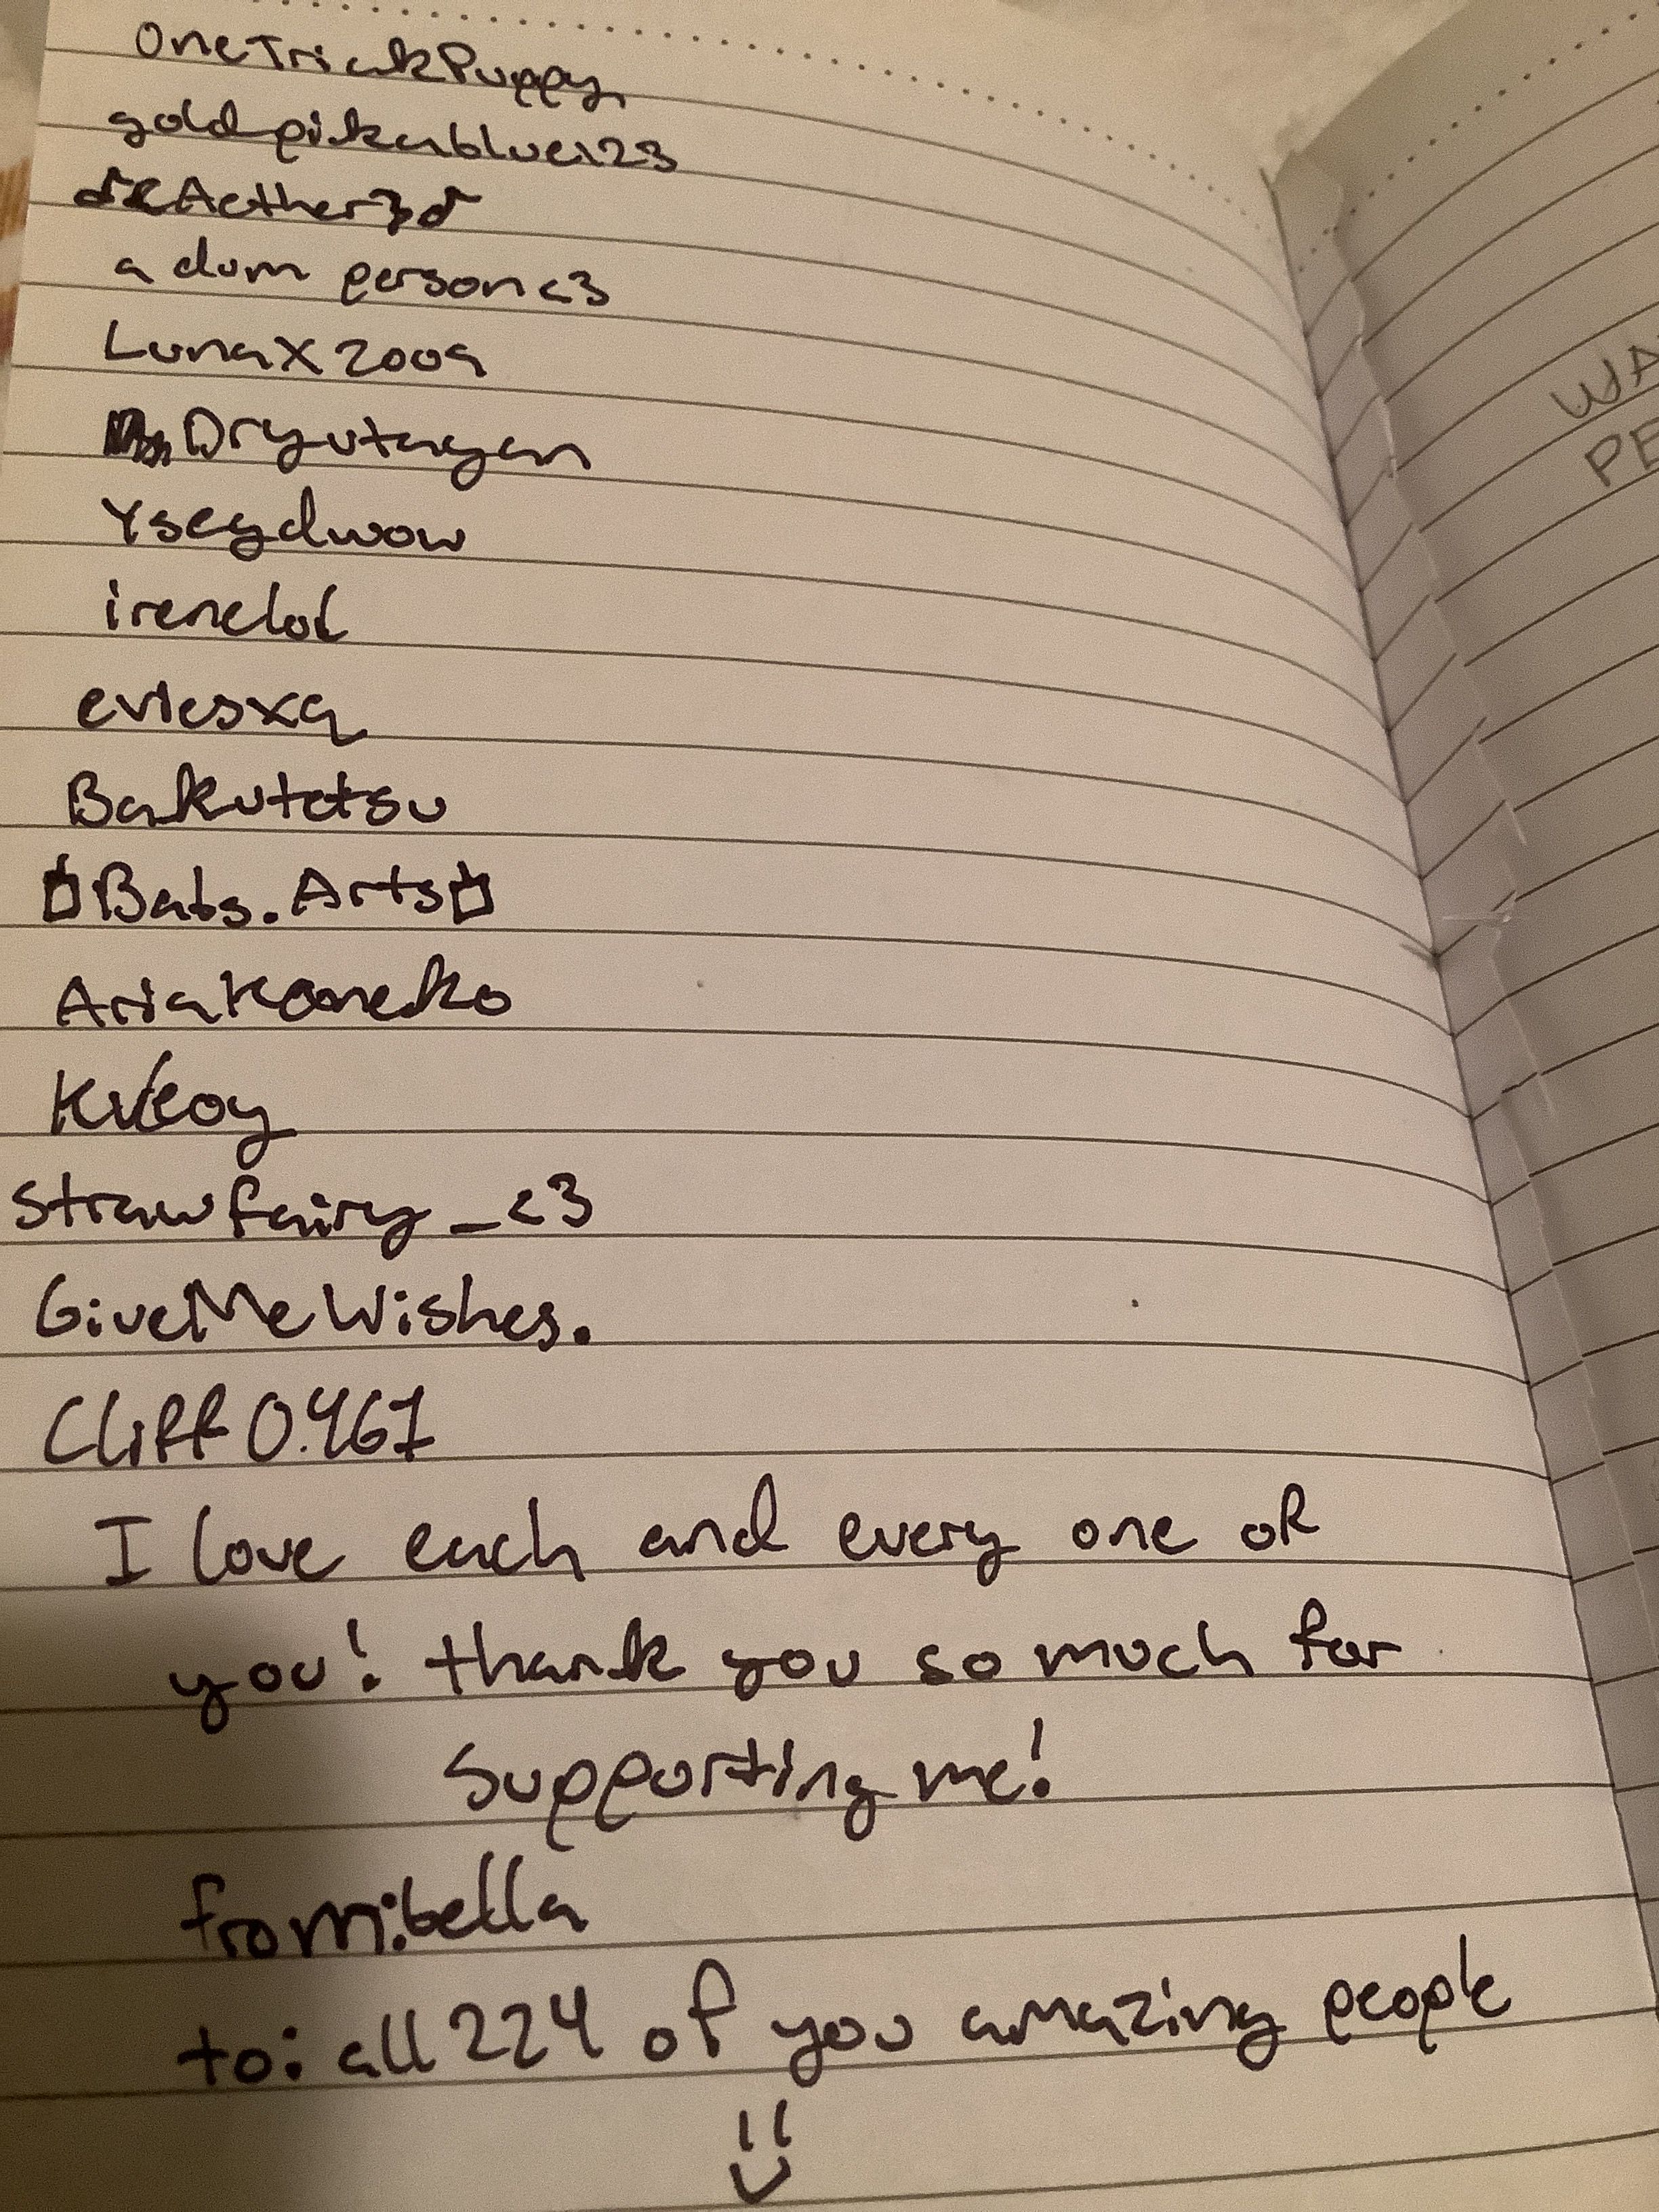 OneTrickPuppy
goldpikablue123
Aether
a dum person<3
LunaX2009
Dryutagen
Ysegdwow
irenelol
eviesxq
Bakutetsu
Bats.Arts
AriaKaneko
Kveoy
Strawfairy_<3
GiveMeWishes.
Cliff0.461
I love each and every one of
you! thank you so much for
supporting me!
from:bella
to: all 224 of you amazing people
WA
PE